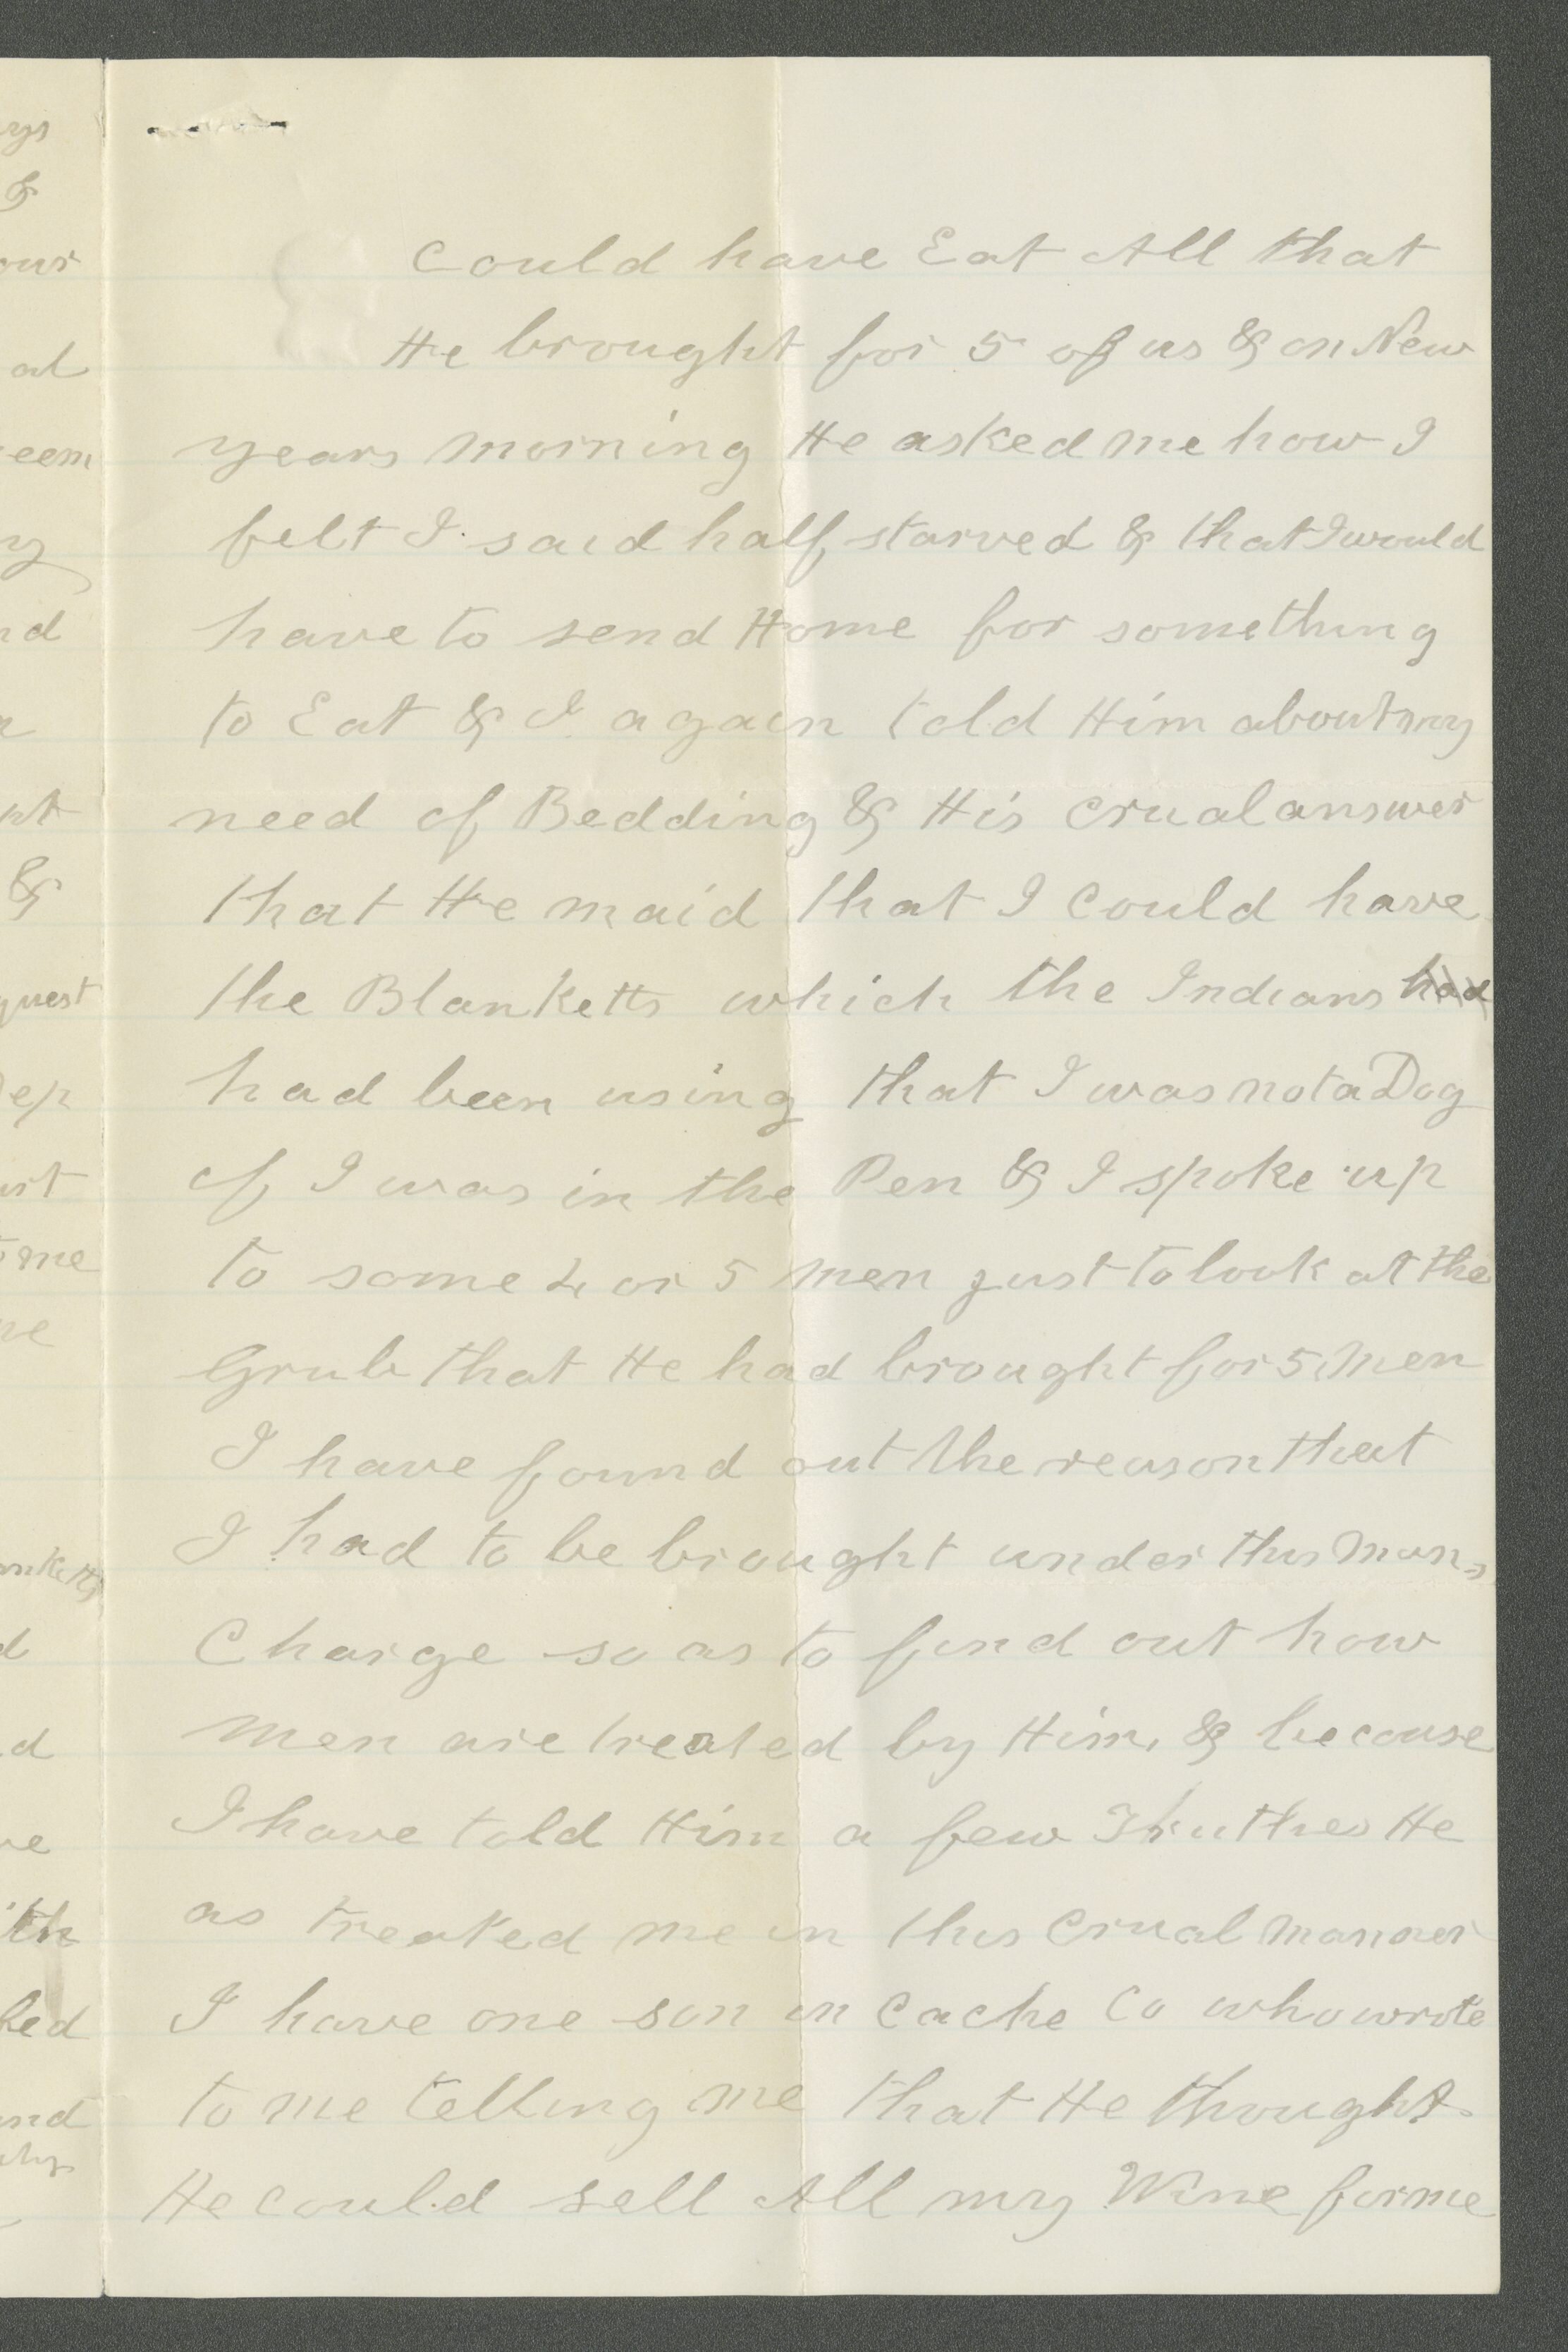 Could have Eat All that
He brought for 5 of us & on New
years morning He asked me how I
felt I said half starved & that I would
have to send Home for something
to Eat & I again told Him about my
need of Bedding & His crual answer
that He maid that I could have
the Blanketts which the Indians had
had been using that I was not a Dog
if I was in the Pen & I spoke up
to some 4 or 5 men just to look at the
Grub that He had brought for 5 men
I have found out the reason that
I had to be brought under this mans
Charge so as to find out how
men are treated by Him, & because
I have told Him a few Thruthes He
as treated me in this Crual manner
I have one son in Cache Co who wrote
to me telling me that He thought
He could sell All my Wine for me